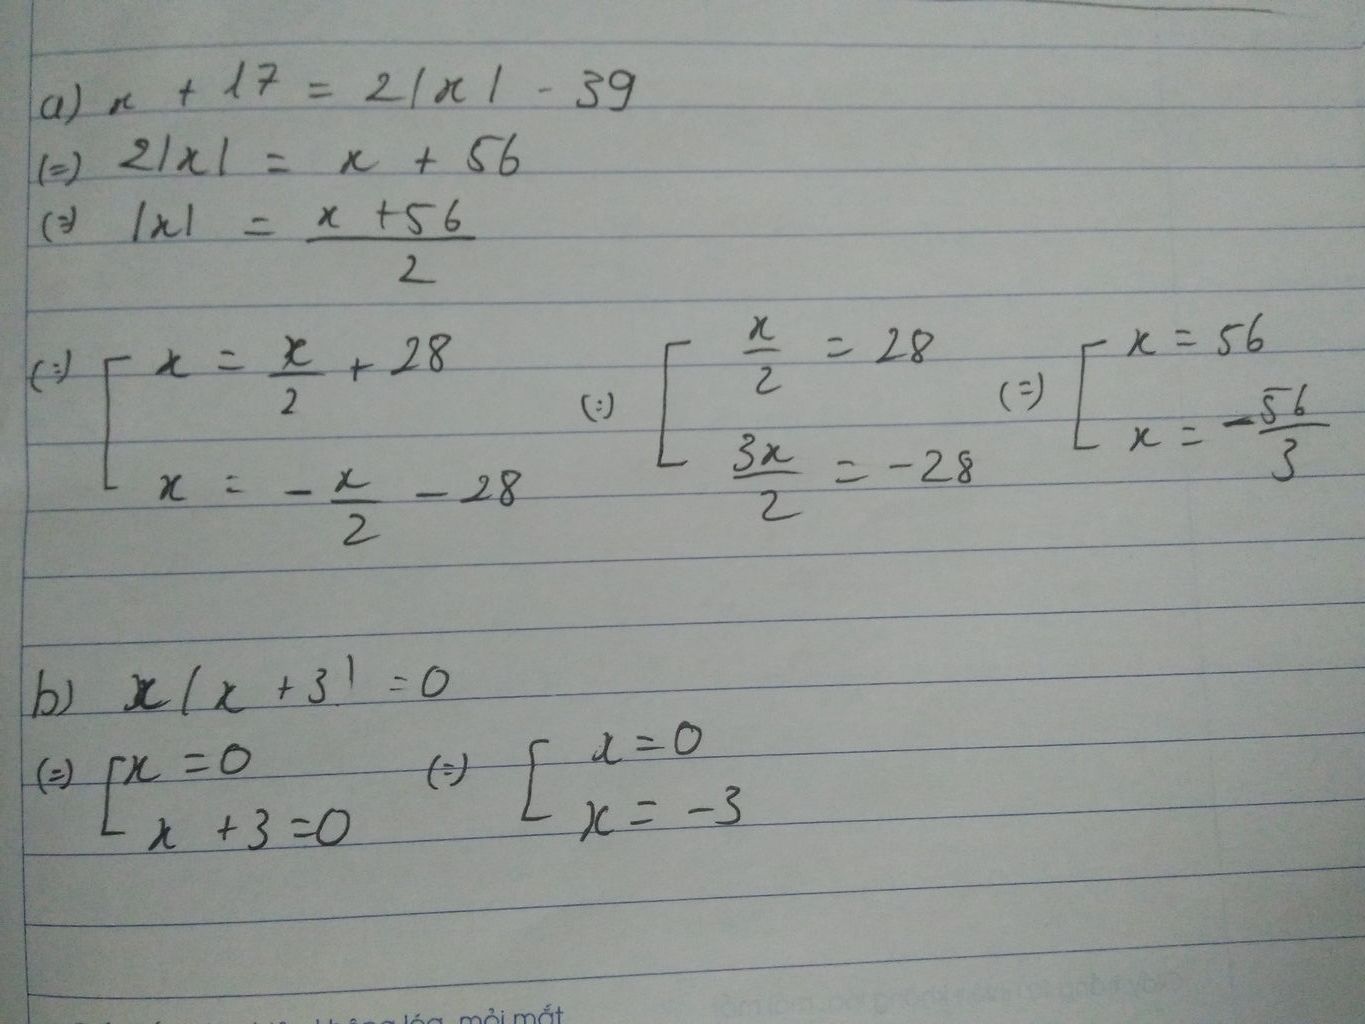 a) x + 17 = 2|x| - 39
(=) 2|x| = x + 56
(=) |x| = \frac{x + 56}{2}
(=) [ x = \frac{x}{2} + 28 ; x = -\frac{x}{2} - 28 (=) [ \frac{x}{2} = 28 ; \frac{3x}{2} = -28 (=) [ x = 56 ; x = -\frac{56}{3}
b) x|x + 3| = 0
(=) [ x = 0 ; x + 3 = 0 (=) [ x = 0 ; x = -3
mỏi mắt